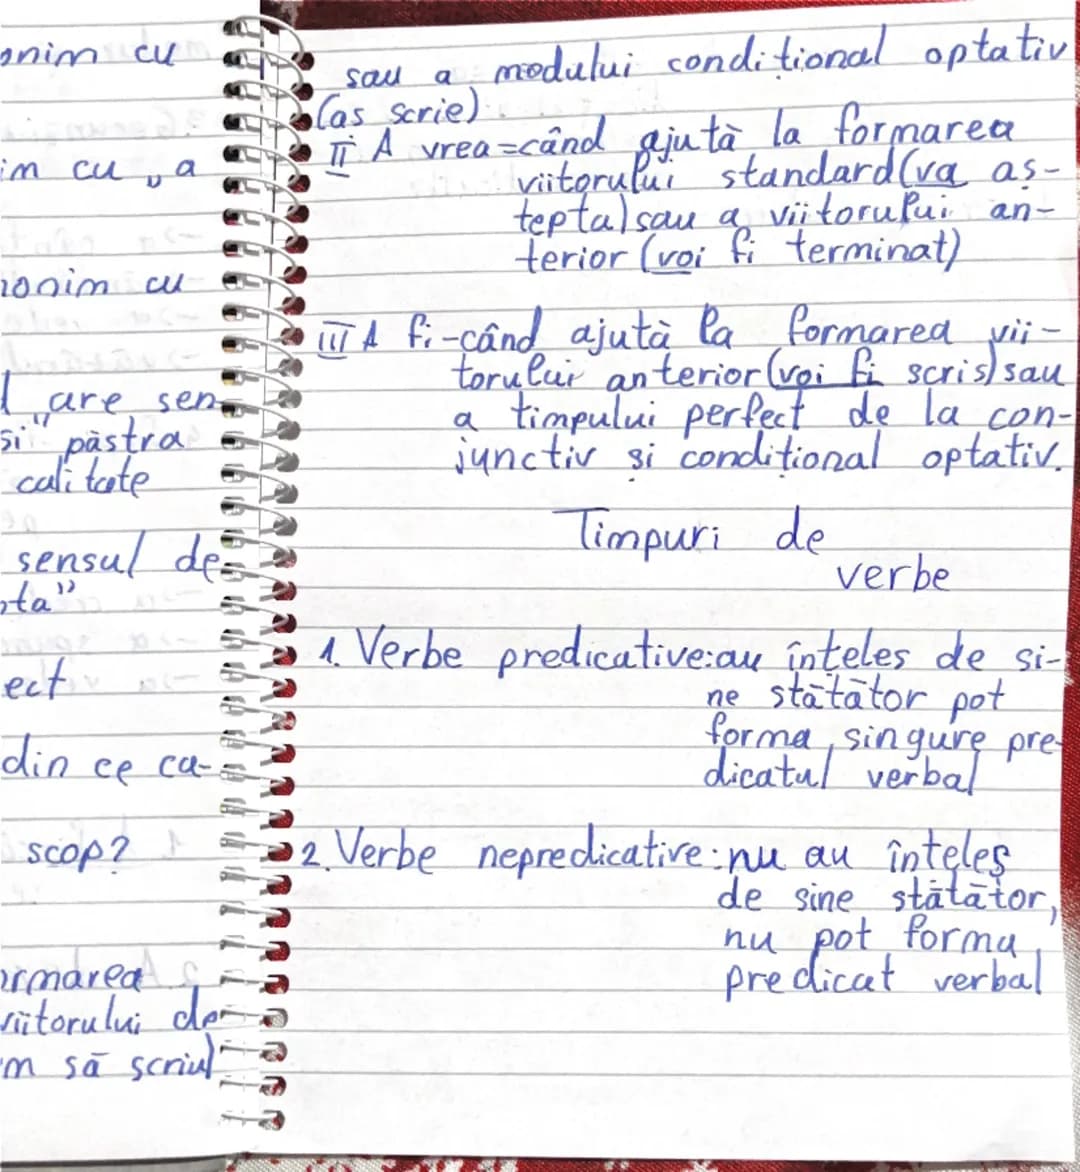 onim cu
im cu „a
nonim cu
l "are sen-
si" păstra
calitate
sensul de
ota"
ect
din ce ca-
scop?
ormarea
viitorului de
m să scriu)
sau a modului condițional optativ
(as scrie)
II A vrea=când ajută la formarea
viitorului standard(va as-
tepta)sau a viitorului an-
terior (voi fi terminat)
III A fi-când ajută la formarea vii-
torului anterior(voi fi scris)sau
a timpului perfect de la con-
junctiv și condițional optativ.
Timpuri de
verbe
1. Verbe predicative:au înteles de si-
ne stătător pot
forma singure pre-
dicatul verbal
2. Verbe nepredicative:nu au înțeles
de sine stătător,
nu pot forma
predicat verbal